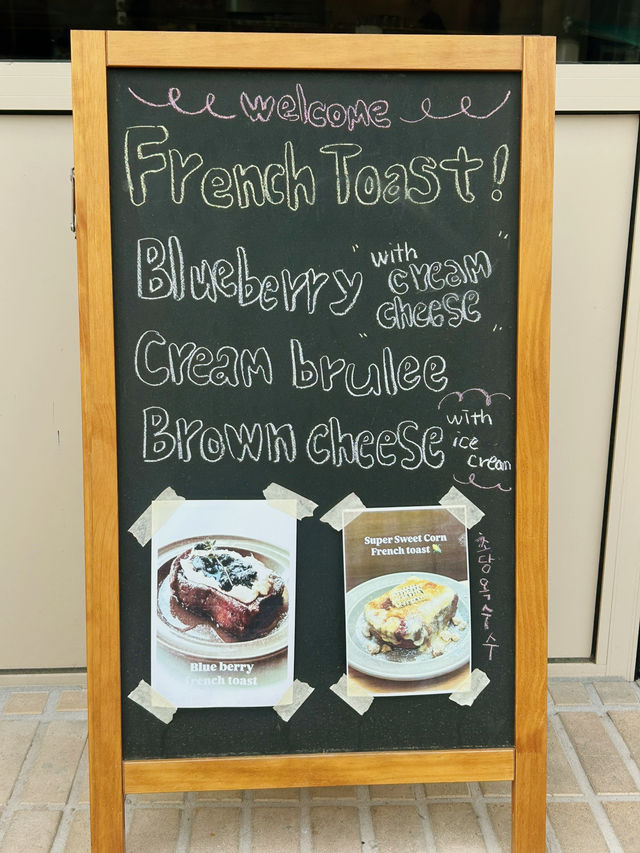 welcome
French Toast!
Blueberry "with cream cheese"
Cream brulee
Brown cheese with ice cream
Blue berry
french toast
Super Sweet Corn
French toast
초당옥수수